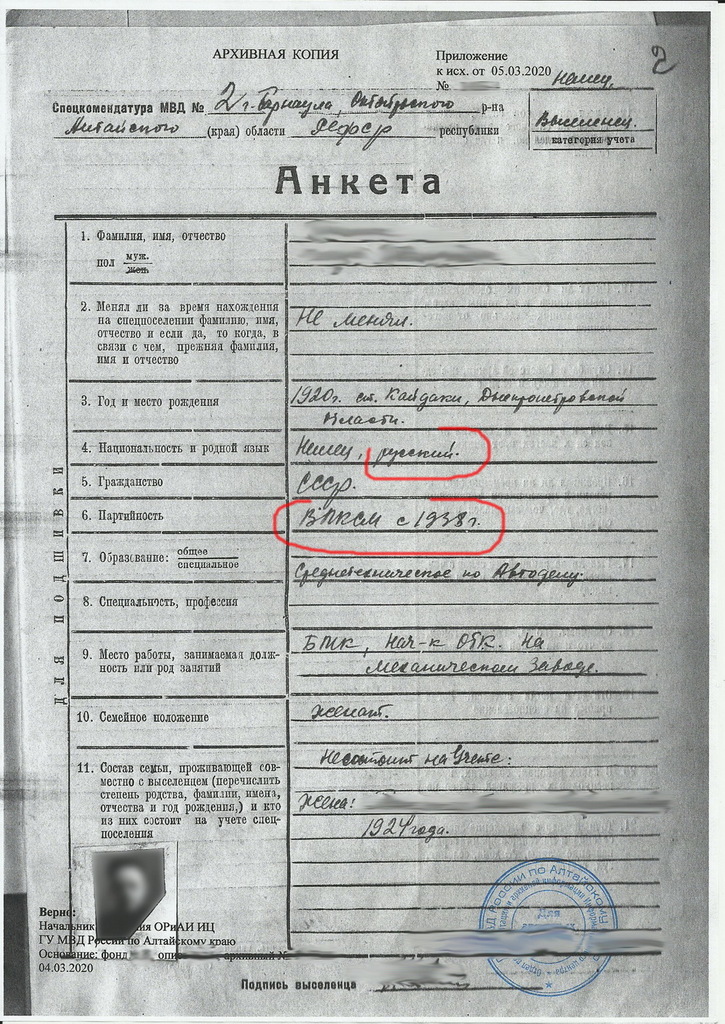 АРХИВНАЯ КОПИЯ
Приложение
к исх. от 05.03.2020
№
2
немец.
Спецкомендатура МВД № 2 г. Барнаула, Октябрьского р-на
Алтайского (края) области РСФСР республики
Выселенец.
категория учета
Анкета
1. Фамилия, имя, отчество
пол муж.
жен.
2. Менял ли за время нахождения
на спецпоселении фамилию, имя,
отчество и если да, то когда, в
связи с чем, прежняя фамилия,
имя и отчество
Не менял.
3. Год и место рождения
1920г. ст. Кайдаки, Днепропетровской
области.
4. Национальность и родной язык
Немец, русский.
5. Гражданство
СССР.
6. Партийность
ВЛКСМ с 1938г.
7. Образование: общее
специальное
Среднетехническое по Автоделу.
8. Специальность, профессия
9. Место работы, занимаемая долж-
ность или род занятий
БМК, нач-к ОТК. на
механическом заводе.
10. Семейное положение
женат.
11. Состав семьи, проживающей сов-
местно с выселенцем (перечислить
степень родства, фамилии, имена,
отчества и год рождения,) и кто
из них состоит на учете спец-
поселения
Несостоит на учете:
жена:
1924 года.
ДЛЯ ПОДШИВКИ
Верно:
Начальник ОРиАИ ИЦ
ГУ МВД России по Алтайскому краю
Основание: фонд архивный №
04.03.2020
России по Алтайскому
Для
Подпись выселенца